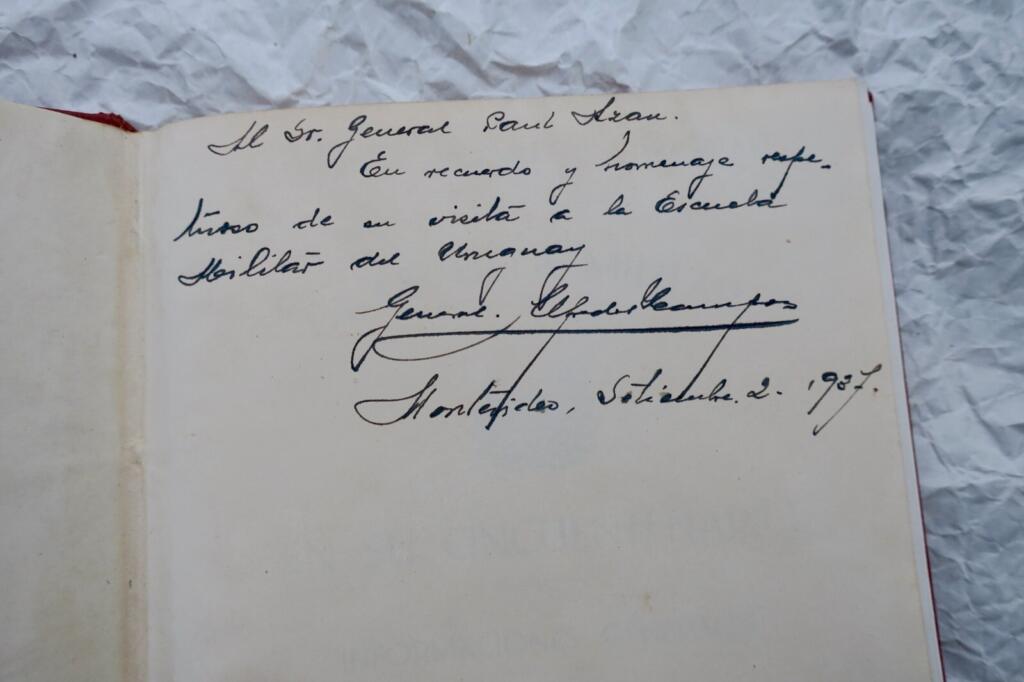 Al Sr. General Paul Azan.
En recuerdo y homenaje respe-
tuoso de su visita a la Escuela
Militar del Uruguay
General. Alfredo R Campos
Montevideo, Setiembre. 2. 1937.